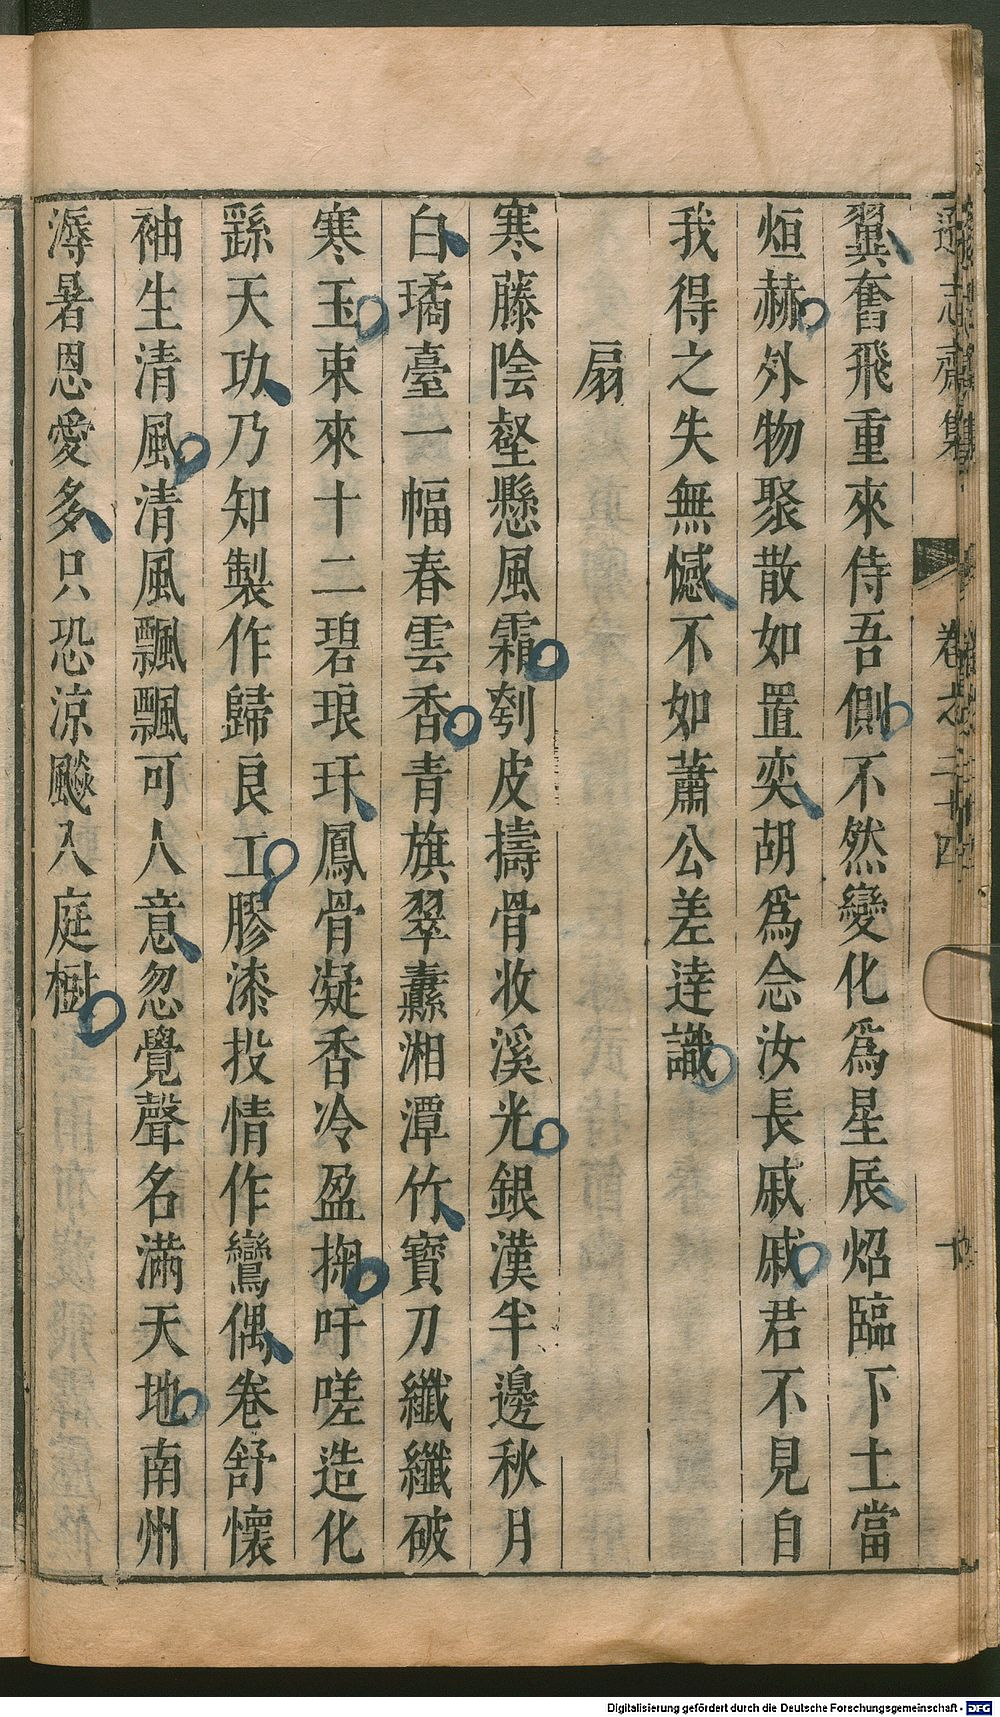 遜志齋集　卷之二十四　十
翼奮飛重來侍吾側不然變化爲星辰炤臨下土當
烜赫外物聚散如置奕胡爲念汝長戚戚君不見自
我得之失無憾不如蕭公差達識
扇
寒藤陰壑懸風霜刳皮擣骨收溪光銀漢半邊秋月
白璚臺一幅春雲香青旗翠纛湘潭竹寶刀纖纖破
寒玉束來十二碧琅玕鳳骨凝香冷盈掬吁嗟造化
繇天功乃知製作歸良工膠漆投情作鸞偶卷舒懷
袖生清風清風飄飄可人意忽覺聲名滿天地南州
溽暑恩愛多只恐涼飈入庭樹
Digitalisierung gefördert durch die Deutsche Forschungsgemeinschaft - DFG